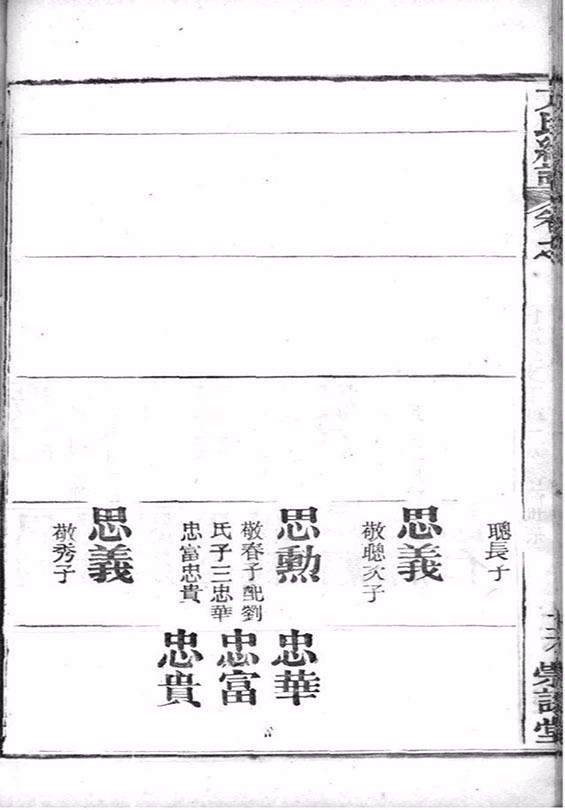 氏總譜 卷之
聰長子
思義
敬聰次子
思勲
敬春子配劉
氏子三忠華
忠富忠貴
思義
敬秀子
忠華
忠富
忠貴
堂